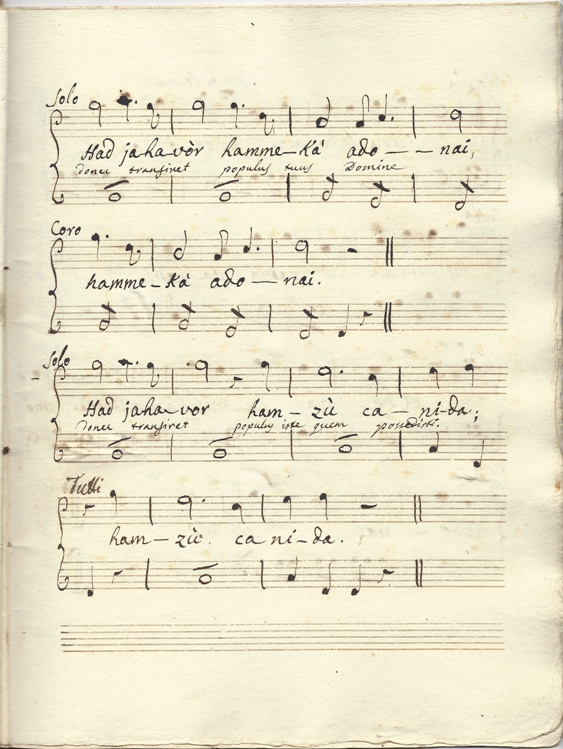 Solo
Had jahavòr hamme-kà ado--nai,
donec transiret populus tuus Domine
Coro
hamme-kà ado-nai.
Solo
Had jahavor ham-zù ca-ni-da;
donec transiret populus iste quem possedisti.
Tutti
ham-zù ca ni-da.